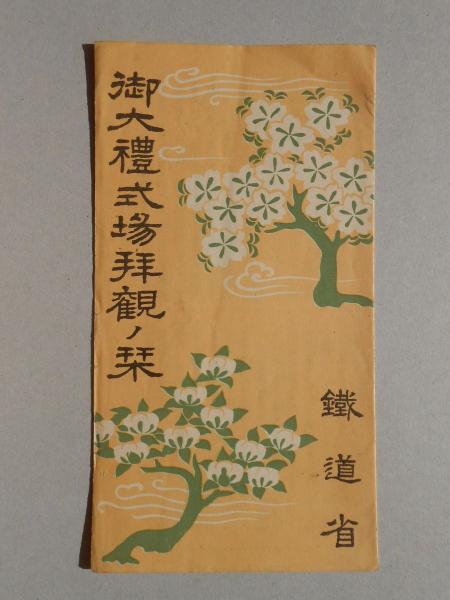 御大禮式場拝觀ノ栞
鐵道省